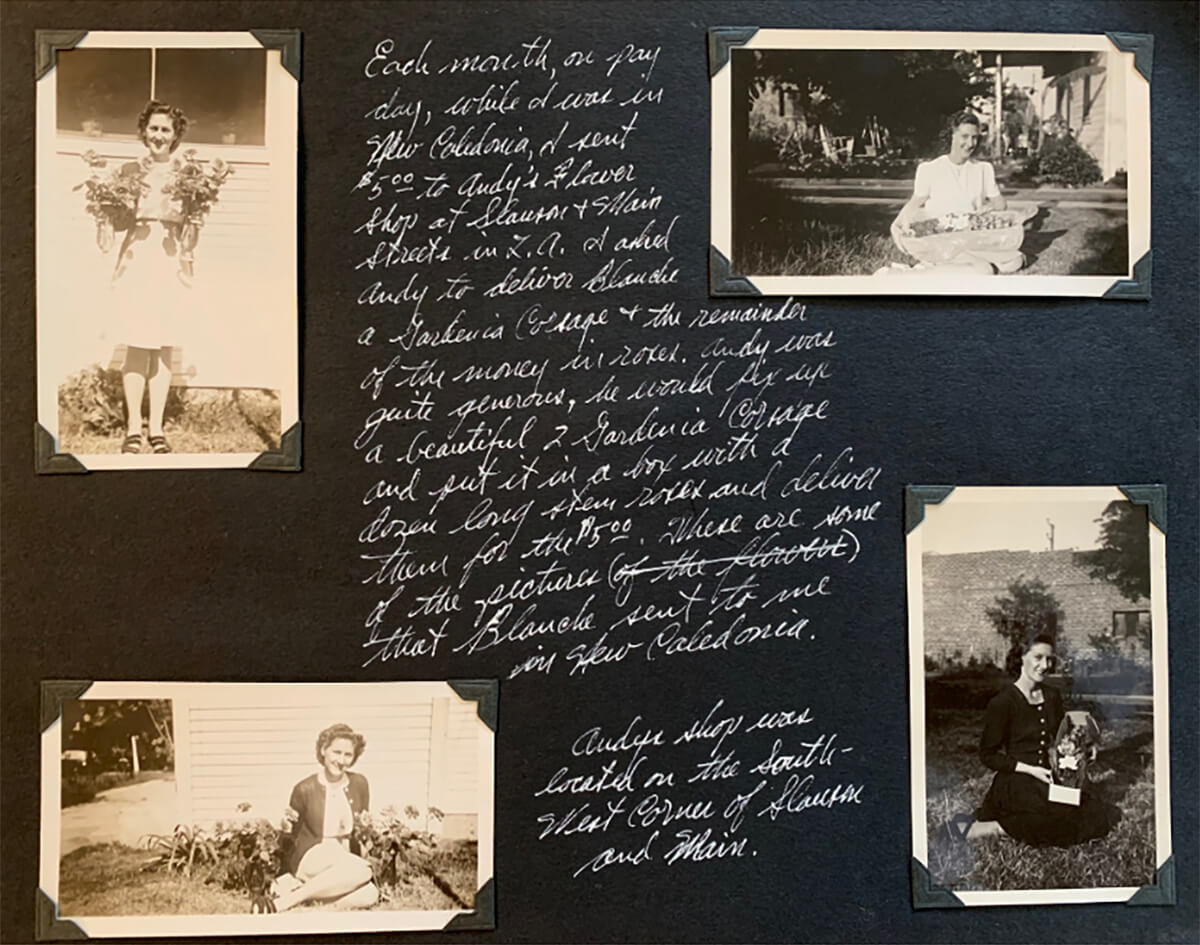 Each month, on pay
day, while I was in
New Caledonia, I sent
$5.00 to Andy's Flower
shop at Slauson & Main
streets in L.A. I asked
Andy to deliver Blanche
a Gardenia Corsage & the remainder
of the money in roses. Andy was
quite generous, he would fix up
a beautiful 2 Gardenia Corsage
and put it in a box with a
dozen long stem roses and deliver
them for the $5.00. These are some
of the pictures (of the flowers)
that Blanche sent to me
in New Caledonia.
Andys shop was
located on the South-
West Corner of Slauson
and Main.